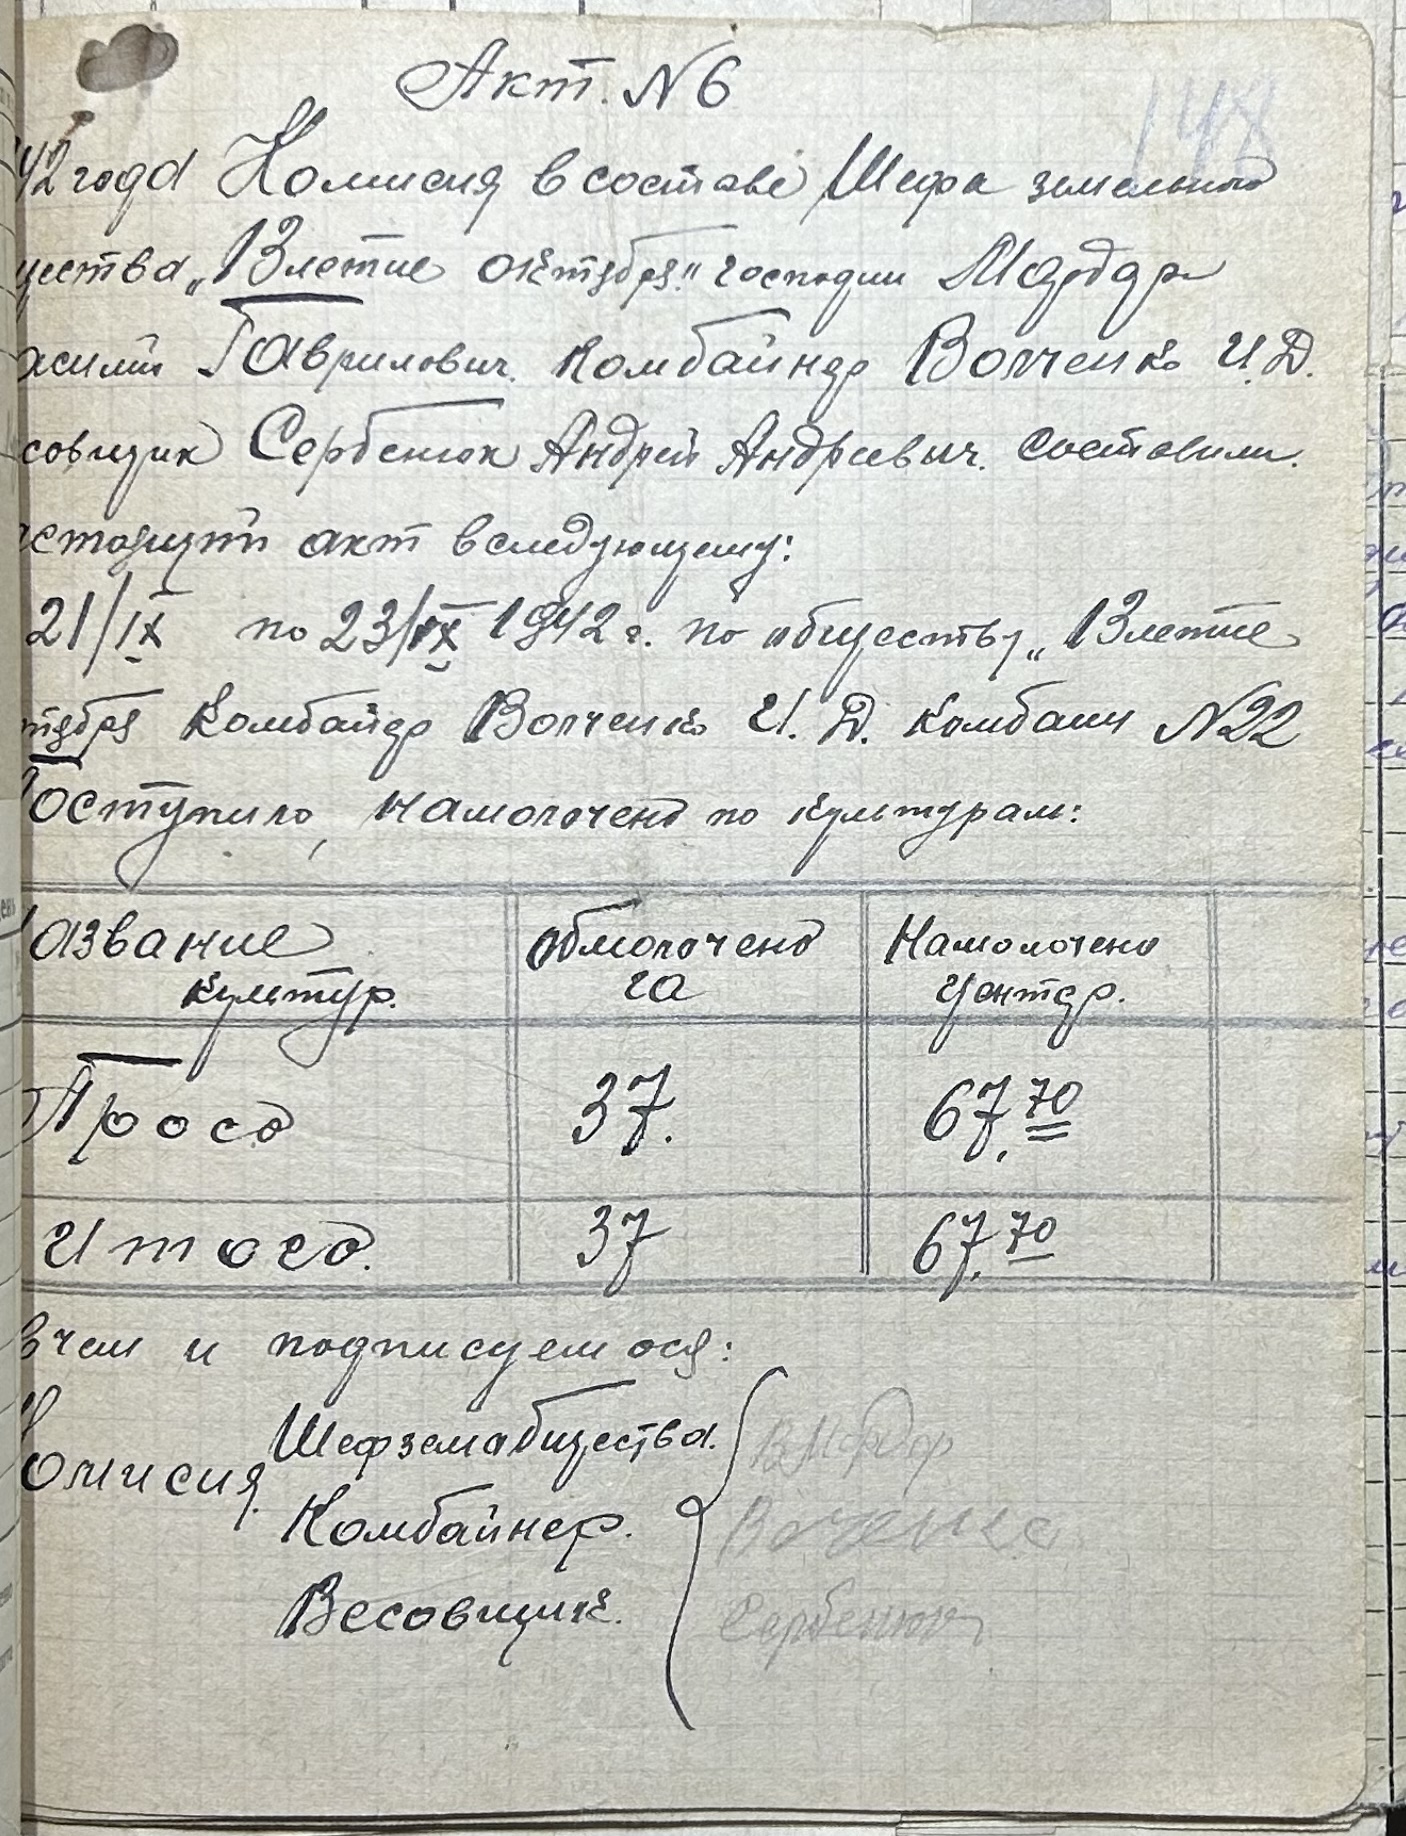 Акт. N 6
148
42 года Комисия в составе Шефа земельного
щества „13 летие октября" господин Мардар
асилий Гаврилович. Комбайнер Волченко И. Д.
совщик Сербенюк Андрей Андреевич. составили.
астоящий акт в следующему:
21/IX по 23/IX 1942 г. по обществу „13 летие
тября Комбайнер Волченко И. Д. Комбаин N 22
Поступило, намолочено по культурам:
Название культур. обмолочено га Намолочено центнр.
Просо 37. 67,70
Итого. 37 67,70
в чем и подписуемося:
Комисия. Шеф земобщества. В Мардар
Комбайнер. Вченко
Весовщик. Сербенюк